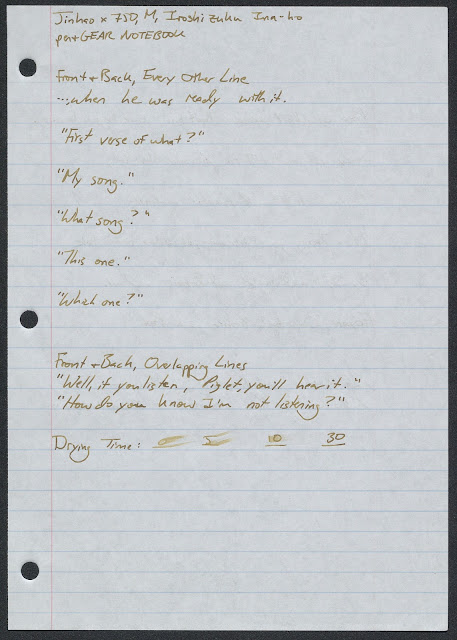 Jinhao x 750, M, Iroshizuku Ina-ho
pen+GEAR NOTEBOOK
Front + Back, Every Other Line
...when he was ready with it.
"First verse of what?"
"My song."
"What song?"
"This one."
"Which one?"
Front + Back, Overlapping Lines
"Well, if you listen, Piglet, you'll hear it."
"How do you know I'm not listening?"
Drying Time: 0 5 10 30